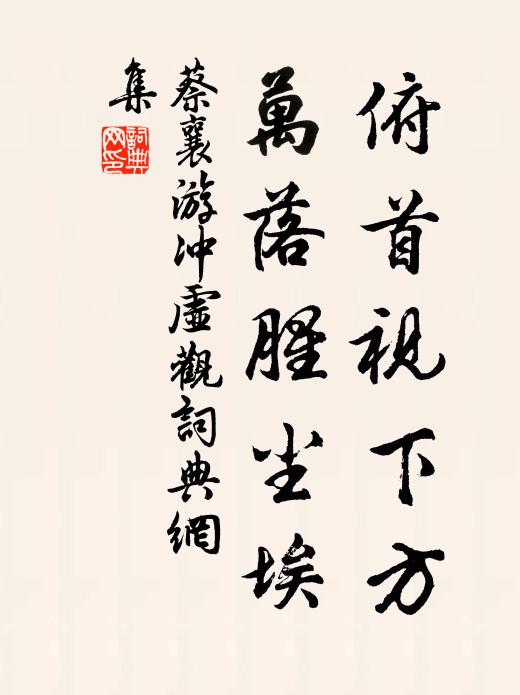 俯首視下方
萬落腥尘埃
蔡襄游冲虛觀詞典網
集
詞典網印